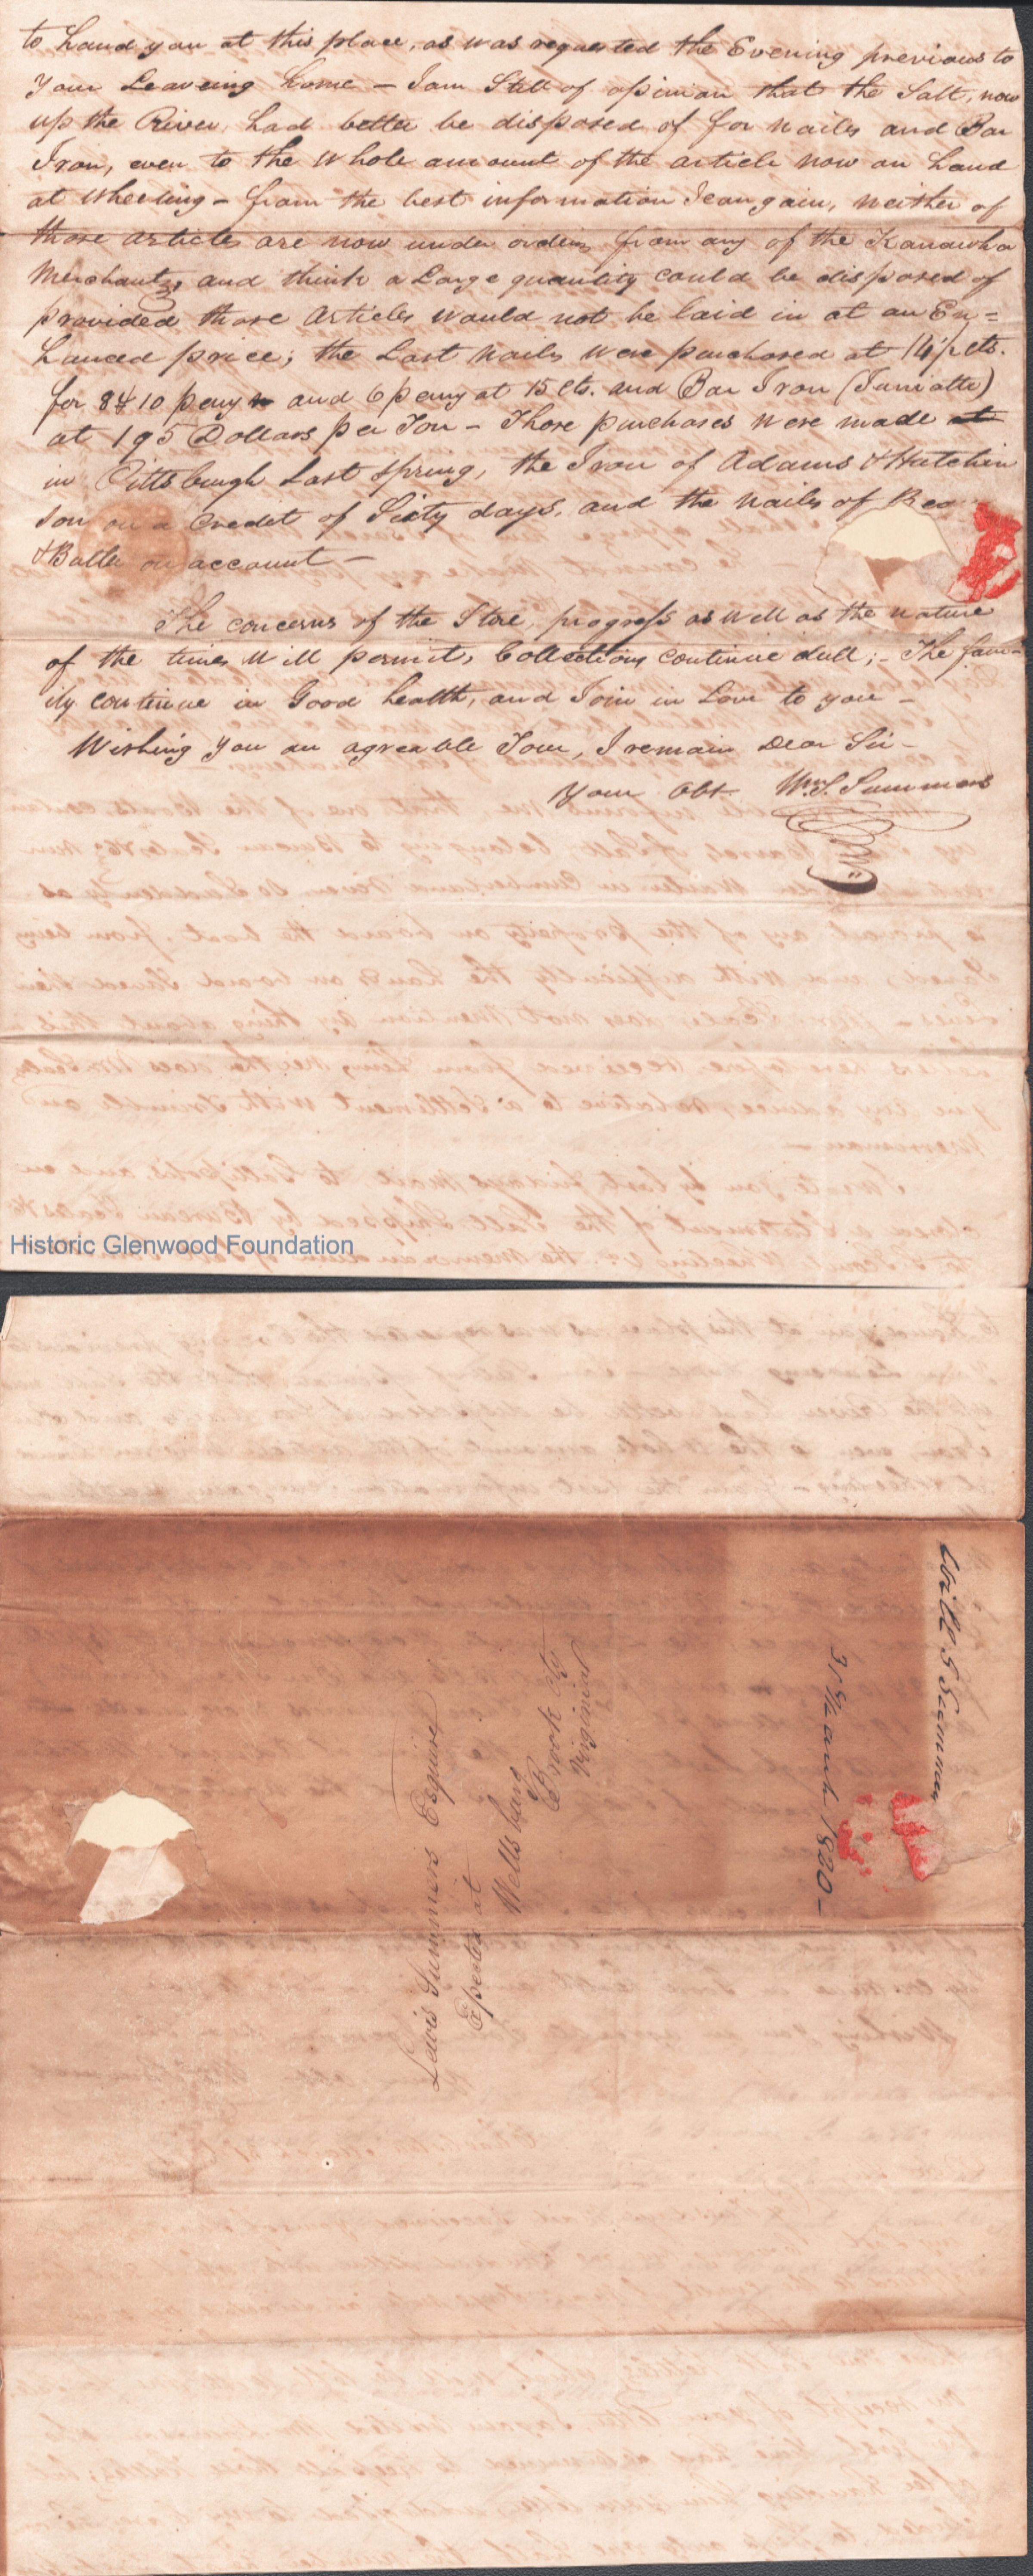 to hand you at this place, as was requested the Evening previous to
your Leaveing home – I am Still of opinion that the Salt, now
up the River, had better be disposed of for nails and Bar
Iron, even to the whole amount of the article now on hand
at Wheeling – from the best information I can gain, neither of
those articles are now under orders from any of the Kanawha
Merchants, and think a Large quantity could be disposed of
provided those Articles would not be laid in at an En=
hanced price; the Last nails were purchased at 14 cts.
for 8 & 10 peny and 6 peny at 15 cts. and Bar Iron (Juniatte)
at 195 Dollars per Ton – Those purchases were made at
in Pittsburgh Last Spring, the Iron of Adams & Hutchin
son on a Credet of Sixty days, and the nails of
& Butler on account –
The concerns of the Store, progress as well as the nature
of the times will permit, Collections continue dull; – The fam–
ily continue in Good health, and Join in Love to you –
Wishing you an agreable Tour, I remain Dear Sir –
Your Obt. Wm. S. Summers
Historic Glenwood Foundation
Will S Summers
31 March 1820 –
Lewis Summers Esquire
Expected at
Wellsburg
Brook Cty
Virginia